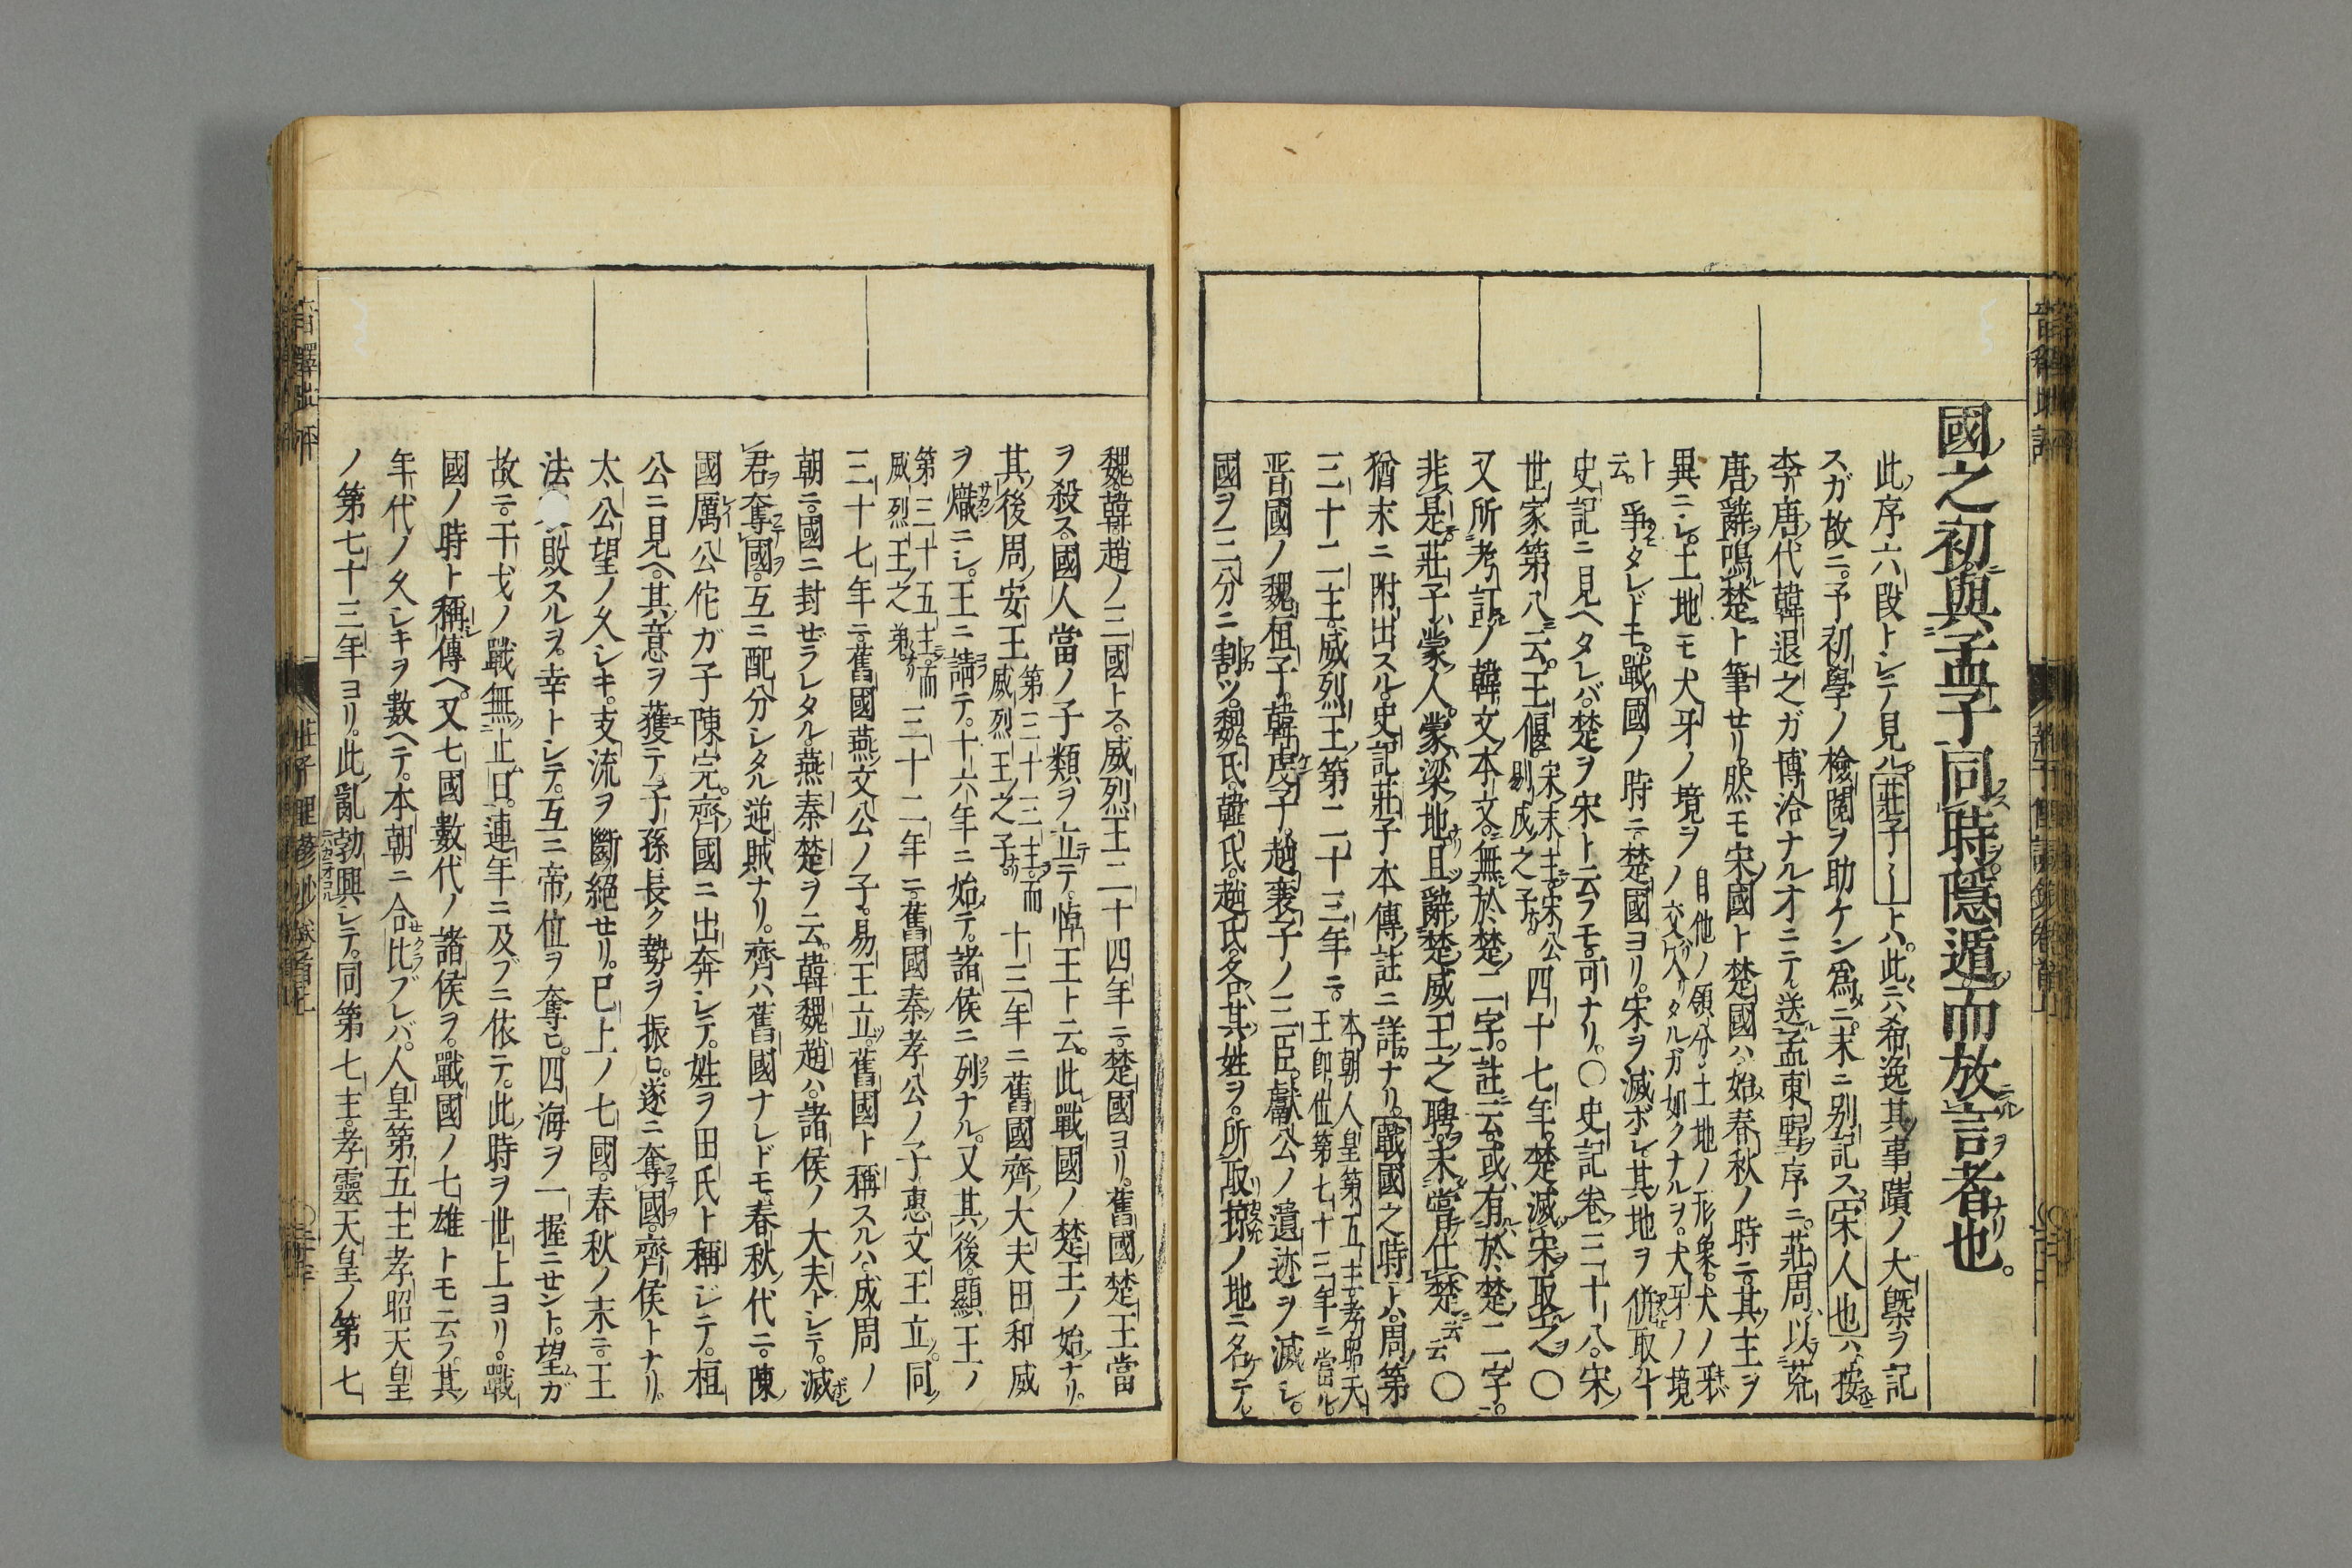 國之初與孟子同時隱遁而放言者也。
此序六段トシテ見ル。莊子〡トハ。此ニハ希逸其事蹟ノ大槩ヲ記
スガ故ニ。予初學ノ檢閱ヲ助ケン爲ニ。末ニ別記ス。宋人也ハ、按
李唐ノ代韓退之ガ博洽ナル才ニテ。送孟東野序ニ。莊周以荒
唐辭鳴楚ト筆セリ。然モ宋國ト楚國ハ。始春秋ノ時ニ。其主ヲ
異ニシ。土地モ犬牙ノ境ヲ
自他ノ領分ノ土地ノ形象。犬ノ牙
ノ交入リタルガ如クナルヲ。犬牙ノ境
ト云。爭タレドモ。戰國ノ時ニ。楚國ヨリ。宋ヲ滅ボシ其地ヲ併取
史記ニ見ヘタレバ。楚ヲ宋ト云フモ。可ナリ。〇史記卷三十八。宋
世家第八云。王偃
宋末主。宋公
剔成之子
四十七年。楚滅宋取之〇
又所考訂ノ韓文ノ本文。無於楚二字。註云。或有於楚二字。
非是。莊子蒙人。蒙梁地。且辭楚威王之聘。未嘗仕楚云云〇
猶末ニ附出スル。史記莊子本傳ノ註ニ詳ナリ。戰國之時トハ。周第
三十二主。威烈王第二十三年ニ。
本朝人皇第五主孝昭天
王即位第七十三年ニ當ル。
晋國ノ魏桓子。韓虔子。趙襄子ノ三臣。獻公ノ遺迹ヲ滅シ。
國ヲ三分ニ割ツ。魏氏。韓氏。趙氏。各其姓ヲ。所取掠ノ地ニ名ケテ。
魏。韓。趙ノ三國トス。威烈王二十四年ニ。楚國ヨリ。舊國楚王當
ヲ殺ス。國人當ノ子類ヲ立テ。悼王ト云。此戰國ノ楚王ノ始ナリ。
其後周安王
第三十三主。而
威烈王之子
十三年ニ舊國齊ノ大夫田和威
ヲ熾ニシ。王ニ請テ。十六年ニ始テ。諸侯ニ列ナル。又其後。顯王ノ
第三十五主。而
威烈王之弟
三十二年ニ。舊國秦孝公ノ子惠文王立。同
三十七年ニ。舊國燕文公ノ子。易王立。舊國ト稱スルハ。成周ノ
朝ニ。國ニ封ゼラレタル。燕秦楚ヲ云。韓魏趙ハ。諸侯ノ大夫トシテ。滅
君奪國。互ニ配分シタル逆賊ナリ。齊ハ舊國ナレドモ。春秋ノ代ニ。陳
國厲公佗ガ子陳完。齊國ニ出奔シテ。姓ヲ田氏ト稱シテ。桓
公ニ見ヘ。其意ヲ獲テ。子孫長ク勢ヲ振ヒ。遂ニ奪國。齊侯トナリ。
太公望ノ久シキ。支流ヲ斷絕セリ。已上ノ七國。春秋ノ末ニ。王
法敗スルヲ。幸トシテ。互ニ帝位ヲ奪ヒ。四海ヲ一握ニセント。望ガ
故ニ。干戈ノ戰無止日。連年ニ及ブニ依テ。此時ヲ世上ヨリ。戰
國ノ時ト稱傳ヘ。又七國數代ノ諸侯ヲ。戰國ノ七雄トモ云フ。其
年代ノ久シキヲ數ヘテ。本朝ニ合比ブレバ。人皇第五主孝昭天皇
ノ第七十三年ヨリ。此亂勃興シテ。同第七主。孝靈天皇ノ第七